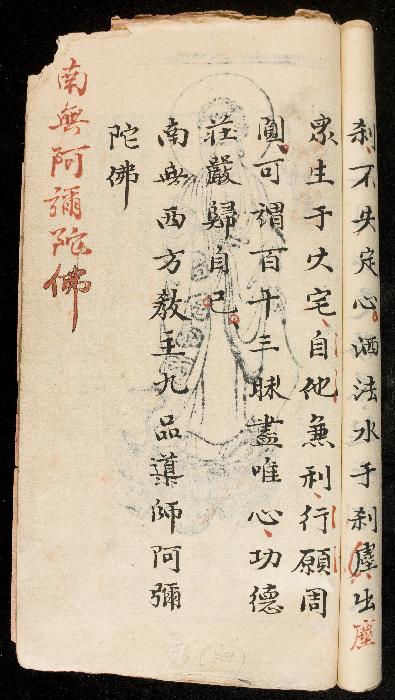 刹、不失定心。洒法水于刹塵出塵
衆生于火宅、自他兼利、行願周
圓、可謂百千三昧盡唯心、功德
莊嚴歸自己。
南無西方教主九品導師阿彌
陀佛
南無阿彌陀佛